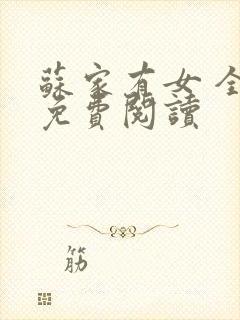 蘇家有女 全
免費閱讀
筋